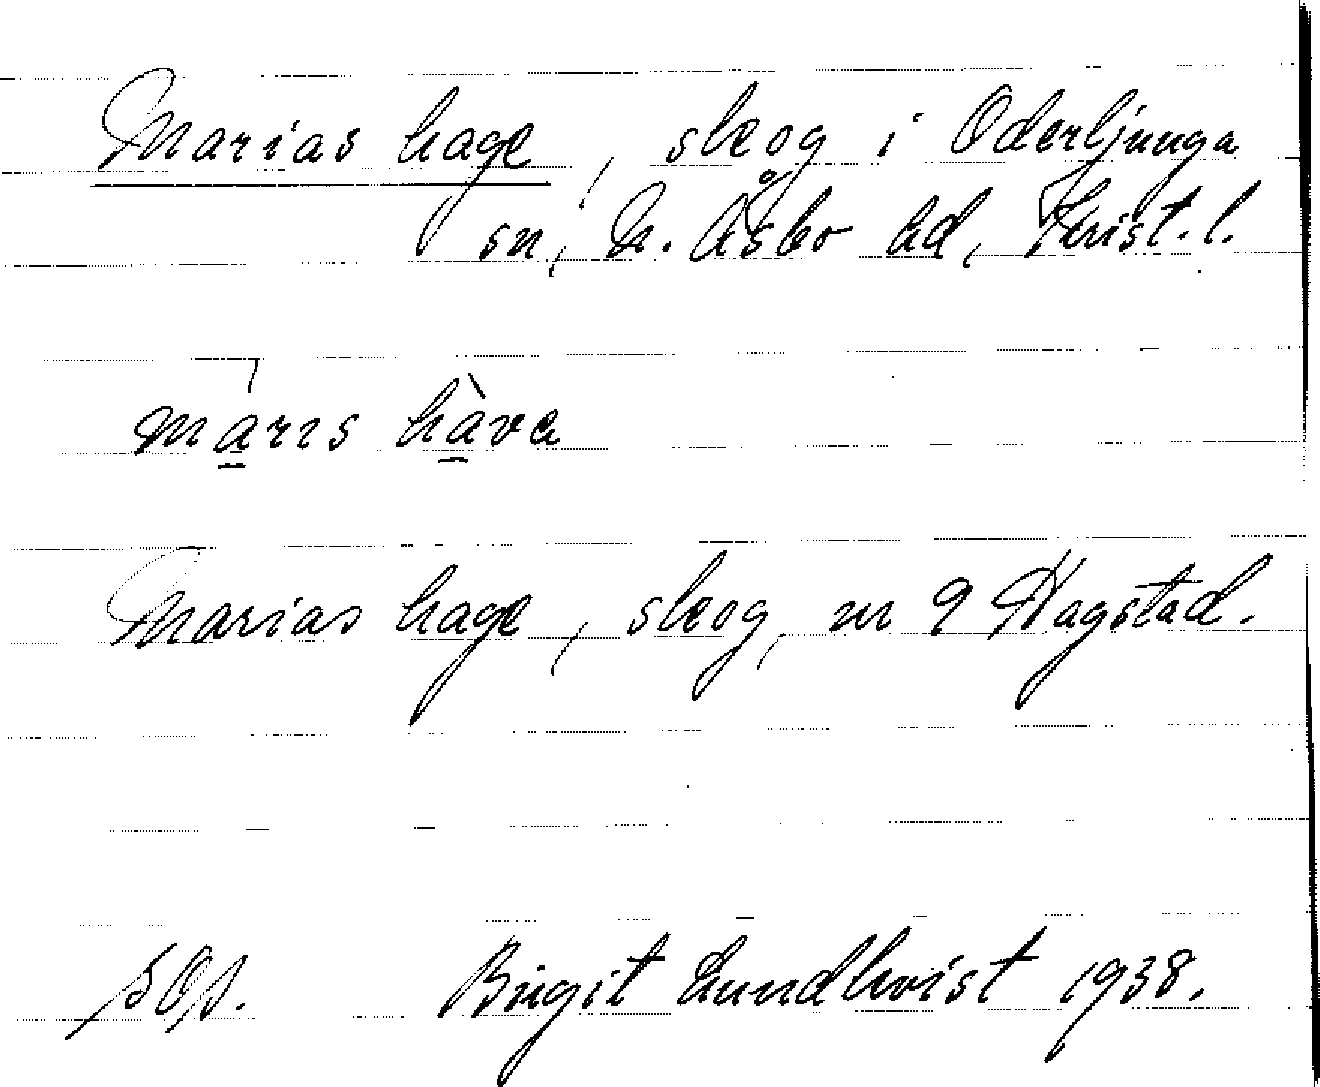 Marias hage, skog i Oderljunga
sn, N. Åsbo hd, Krist. l.
màrıs hàva
Marias hage, skog, nr 9 Hagstad.
Birgit Lundkvist 1938.